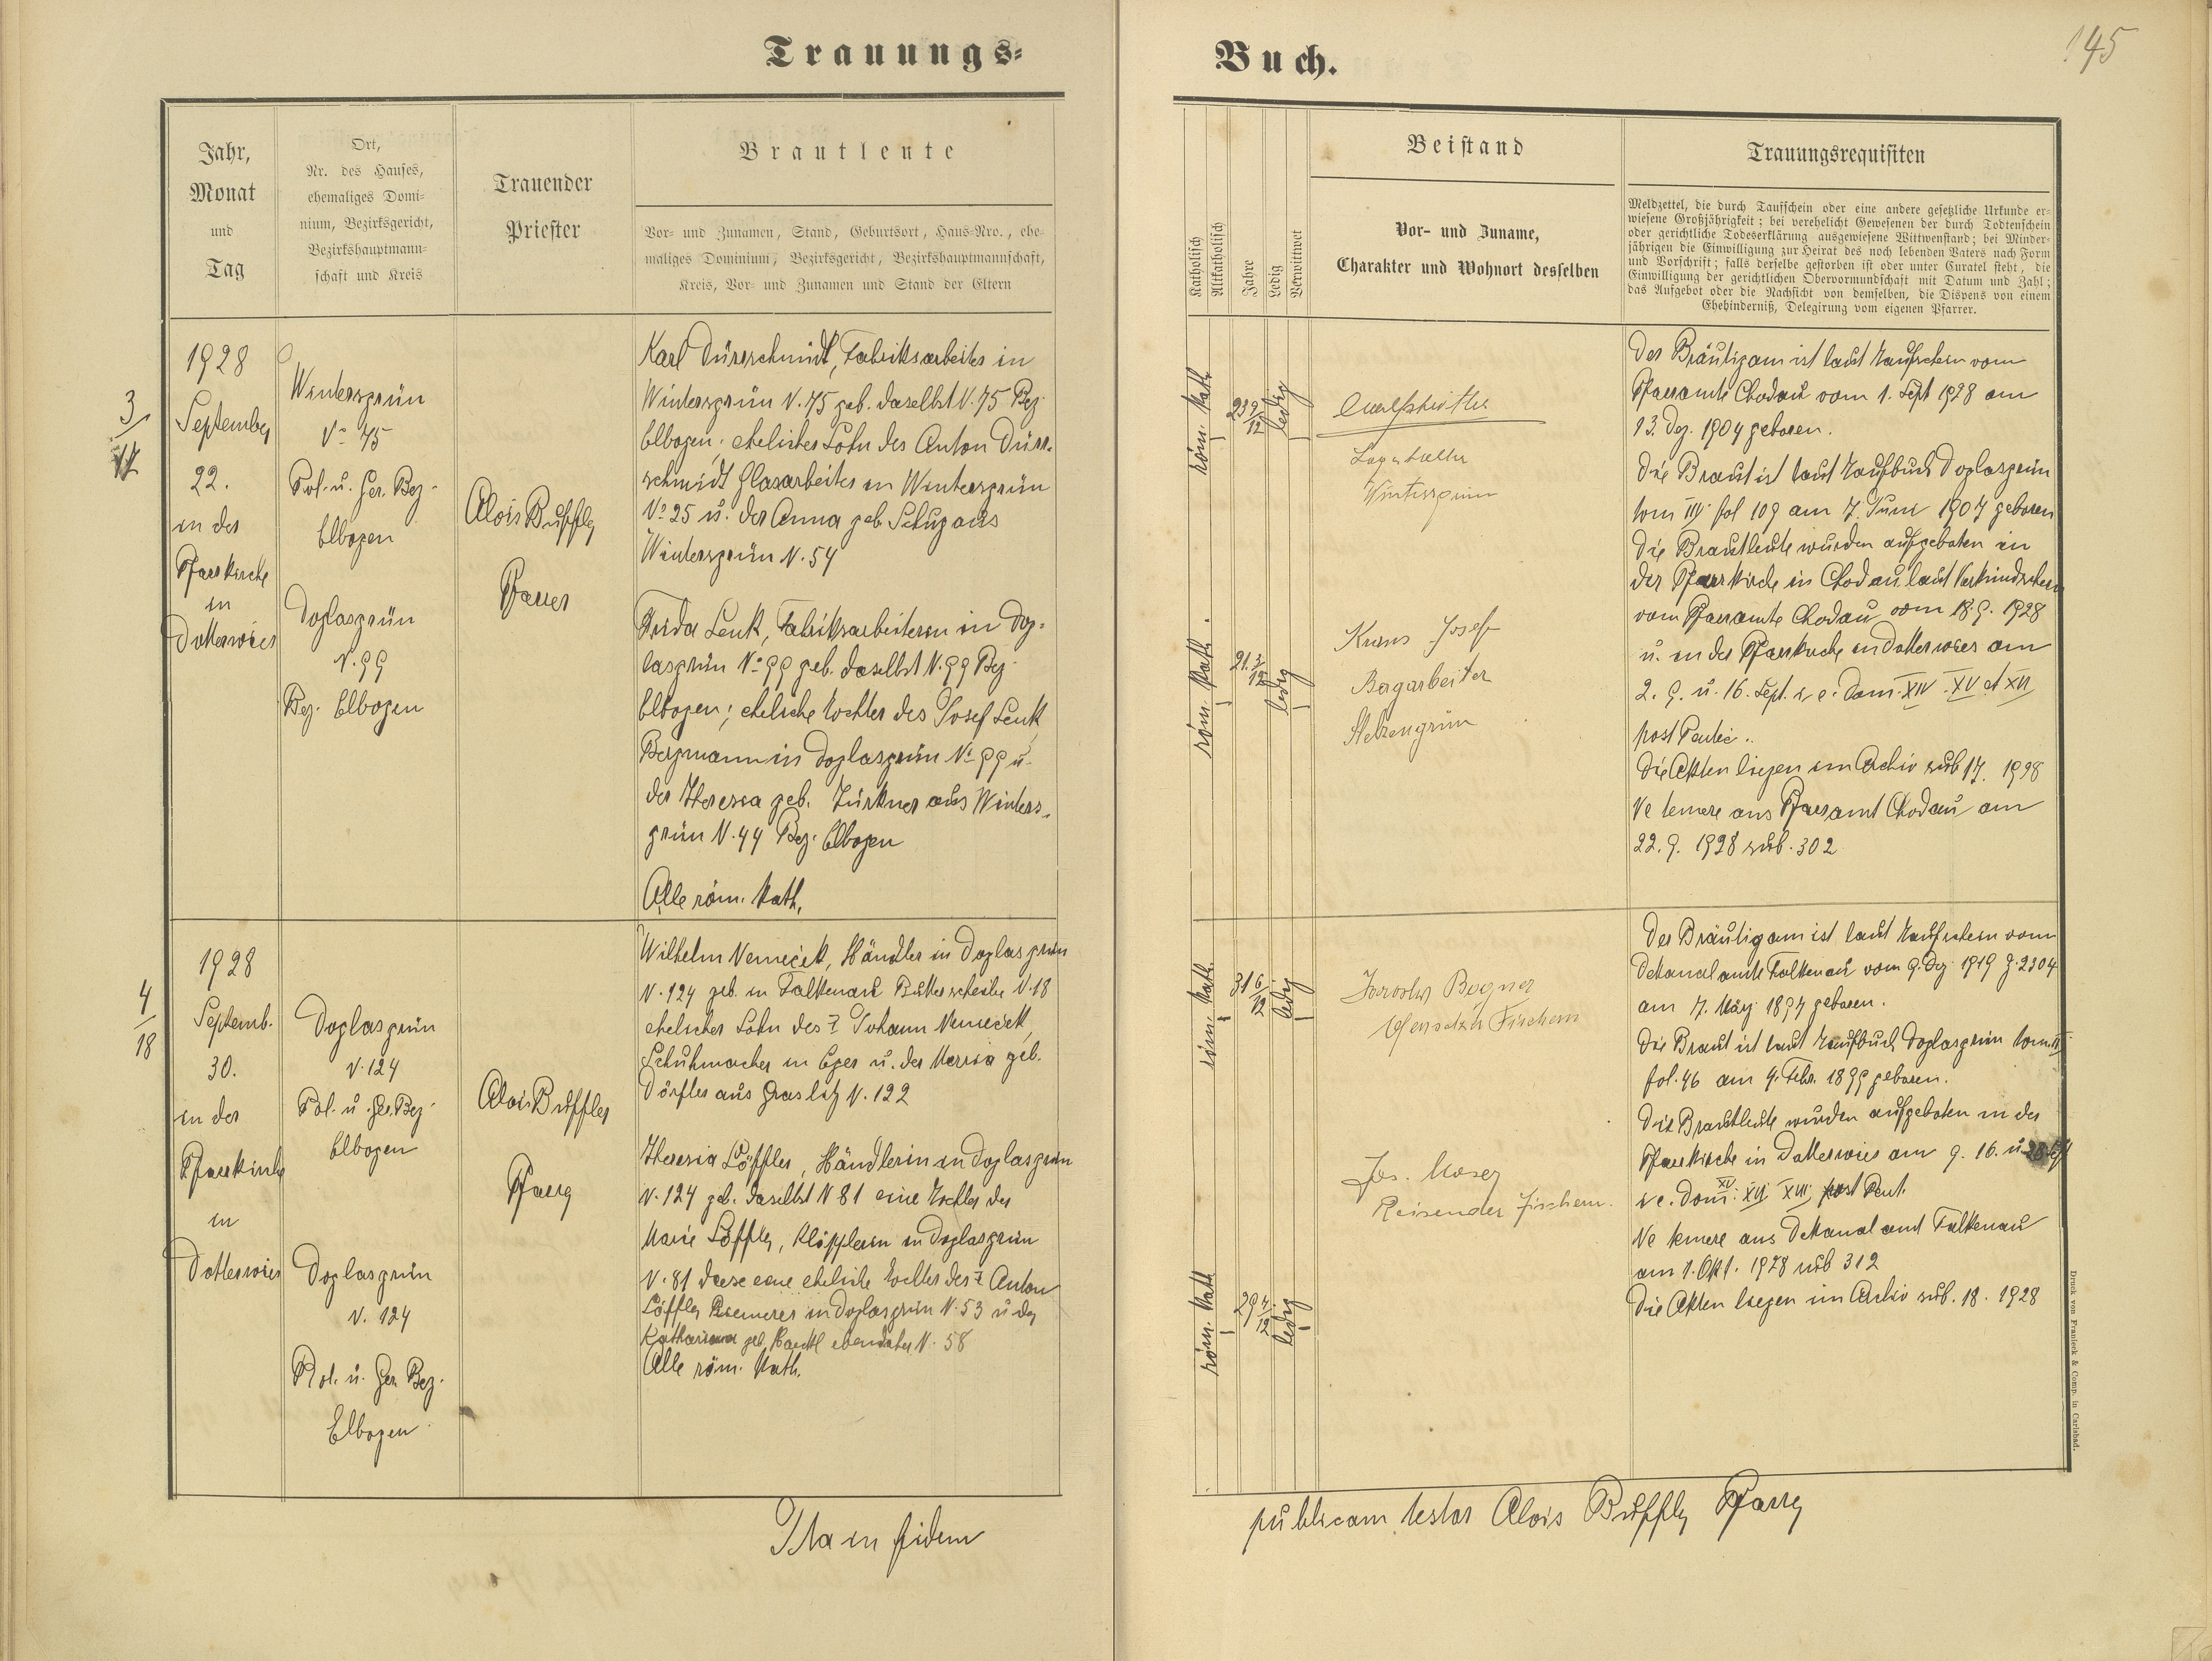 Trauungs-
Buch.
145
Jahr,
Monat
und
Tag
Ort,
Nr. des Hauses,
ehemaliges Domi-
nium, Bezirksgericht,
Bezirkshauptmann-
schaft und Kreis
Trauender
Priester
Brautleute
Vor- und Zunamen, Stand, Geburtsort, Haus-Nro., ehe-
maliges Dominium, Bezirksgericht, Bezirkshauptmannschaft,
Kreis, Vor- und Zunamen und Stand der Eltern
Katholisch
Altkatholisch
Jahre
Ledig
Verwittwet
Beistand
Vor- und Zuname,
Charakter und Wohnort desselben
Trauungsrequisiten
Meldzettel, die durch Taufschein oder eine andere gesetzliche Urkunde er-
wiesene Großjährigkeit; bei verehelicht Gewesenen der durch Todtenschein
oder gerichtliche Todeserklärung ausgewiesene Wittwenstand; bei Minder-
jährigen die Einwilligung zur Heirat des noch lebenden Vaters nach Form
und Vorschrift; falls derselbe gestorben ist oder unter Curatel steht, die
Einwilligung der gerichtlichen Obervormundschaft mit Datum und Zahl;
das Aufgebot oder die Nachsicht von demselben, die Dispens von einem
Ehehinderniß, Delegirung vom eigenen Pfarrer.
3/17
1928
September
22.
in der
Pfarrkirche
in
Dotterwies
Wintersgrün
No 75
Pol. u. Ger. Bez.
Elbogen
Doglasgrün
N. 99
Bez. Elbogen
Alois Buffler
Pfarrer
Karl Dürrschmidt, Fabriksarbeiter in
Wintersgrün N. 75 geb. daselbst N. 75 Bez.
Elbogen; ehelicher Sohn des Anton Dürr-
schmidt Glasarbeiter in Wintersgrün
No 25 u. der Anna geb Schug aus
Wintersgrün N. 54
Frida Lenk, Fabriksarbeiterin in Dog-
lasgrün No 99 geb. daselbst N. 99 Bez.
Elbogen; eheliche Tochter des Josef Lenk,
Bergmann in Doglasgrün No 99 u.
der Theresia geb. Türkner aus Winters-
grün N. 44 Bez. Elbogen
Alle röm. kath.
röm. kath.
23 9/12
ledig
röm. kath.
21 3/12
ledig
Wintersgrün
Josef
Bergarbeiter
Stelzengrün
Der Bräutigam ist laut Taufschein vom
Pfarramte Chodau vom 1. Sept 1928 am
13. Dez. 1904 geboren.
Die Braut ist laut Taufbuch Doglasgrün
tom III. fol 109 am 7. Juni 1907 geboren
Die Brautleute wurden aufgeboten in
der Pfarrkirche in Chodau laut Verkündschein
vom Pfarramte Chodau vom 18. 9. 1928
u. in der Pfarrkirche in Dotterwies am
2. 9. u. 16. Sept. i. e. Dom. XIV XV et XVI
post Pentec.
Die Akten liegen im Archiv sub 17. 1928
Ne temere ans Pfarramt Chodau am
22. 9. 1928 sub. 302
4/18
1928
Septemb.
30.
in der
Pfarrkirche
in
Dotterwies
Doglasgrün
N. 124
Pol. u. Ger. Bez.
Elbogen
Doglasgrün
N. 124
Pol. u. Ger. Bez.
Elbogen
Alois Buffler
Pfarrer
Wilhelm Nemeček, Händler in Doglasgrün
N. 124 geb. in Falkenau N. 18
ehelicher Sohn des † Johann Nemeček,
Schuhmacher in Eger u. der Maria geb.
Dörfler aus Graslitz N. 122
Theresia Löffler, Händlerin in Doglasgrün
N. 124 geb. daselbst N 81 eine Tochter der
Marie Löffler, Klöpplerin in Doglasgrün
N. 81 diese eine eheliche Tochter des † Anton
Löffler in Doglasgrün N. 53 u. der
Katharina geb. ebendaher N. 58
Alle röm. kath.
röm. kath.
31 6/12
ledig
röm. kath
29 7/12
ledig
Bogner
Fischern
Jos. Moser
Reisender Fischern.
Der Bräutigam ist laut Taufschein vom
Dekanalamte Falkenau vom 9. Dez. 1919 Z. 2304
am 7. März 1897 geboren.
Die Braut ist laut Taufbuch Doglasgrün tom. II
fol. 46 am 4. Febr. 1899 geboren.
Die Brautleute wurden aufgeboten in der
Pfarrkirche in Dotterwies am 9. 16. u.
i. e. Dom. XV XVI XVII post Pent.
Ne temere ans Dekanalamt Falkenau
am 1. Okt. 1928 sub 312
Die Akten liegen im Archiv sub. 18. 1928
Ita in fidem
publicam testor Alois Buffler Pfarrer
Druck von Franieck & Comp. in Carlsbad.